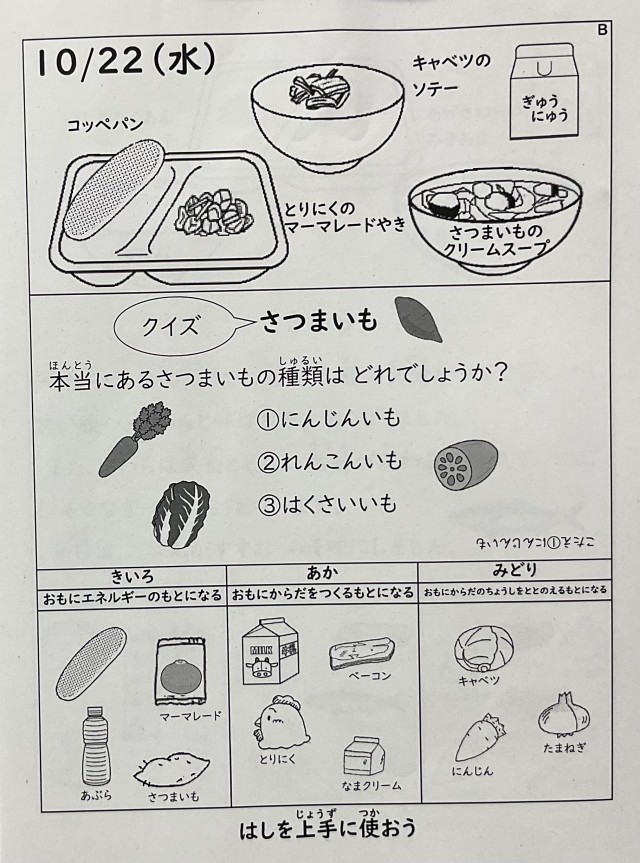 B
10/22(水)
キャベツの
ソテー
ぎゅう
にゅう
コッペパン
とりにくの
マーマレードやき
さつまいもの
クリームスープ
クイズ
さつまいも
ほんとう しゅるい
本当にあるさつまいもの種類は どれでしょうか?
①にんじんいも
②れんこんいも
③はくさいいも
こたえ①にんじんいも
きいろ あか みどり
おもにエネルギーのもとになる おもにからだをつくるもとになる おもにからだのちょうしをととのえるもとになる
MILK
ベーコン
キャベツ
マーマレード
とりにく
たまねぎ
にんじん
なまクリーム
あぶら
さつまいも
じょうず つか
はしを上手に使おう